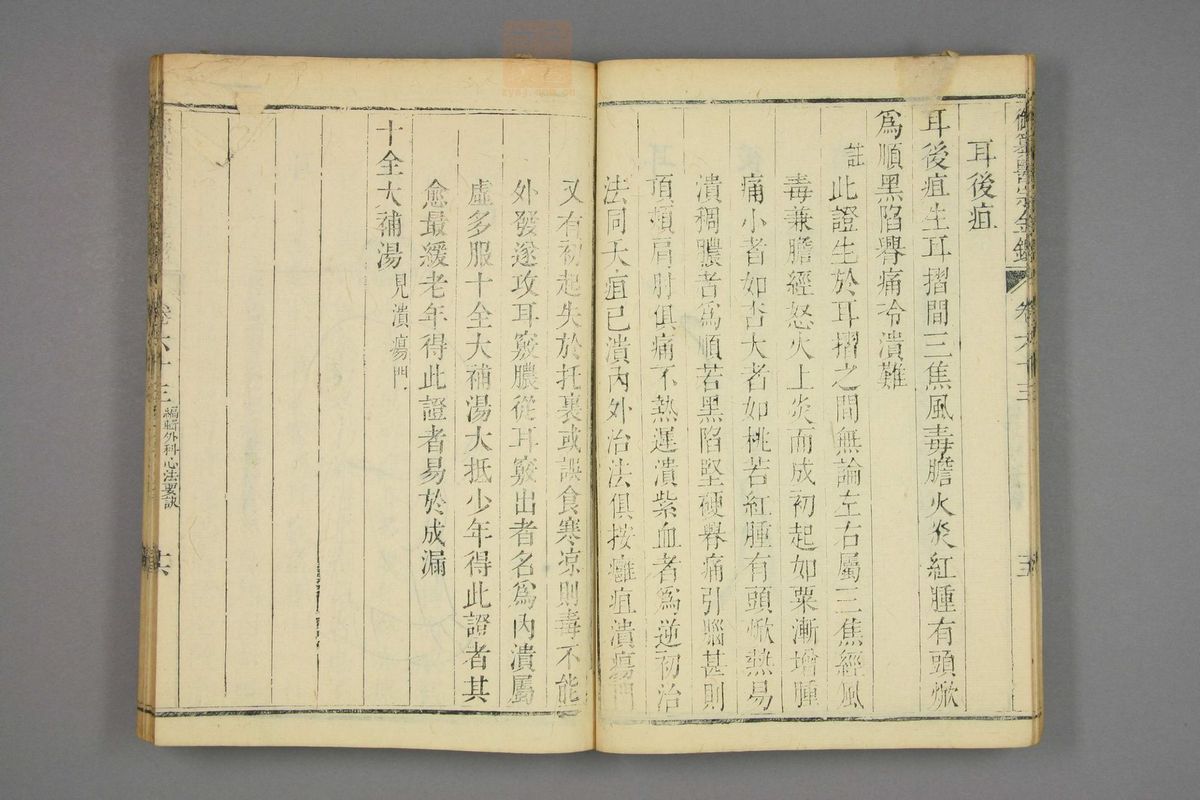 御纂醫宗金鑑 卷六十三 五
耳後疽
耳後疽生耳摺間三焦風毒膽火炎紅腫有頭焮
爲順黑陷臖痛冷潰難
註 此證生於耳摺之間無論左右屬三焦經風
毒兼膽經怒火上炎而成初起如粟漸增腫
痛小者如杏大者如桃若紅腫有頭焮熱易
潰稠膿者爲順若黑陷堅硬臖痛引腦甚則
項頰肩肘俱痛不熱遲潰紫血者爲逆初治
法同夭疽已潰內外治法俱按癰疽潰瘍門
又有初起失於托裏或誤食寒凉則毒不能
外發遂攻耳竅膿從耳竅出者名爲內潰屬
虛多服十全大補湯大抵少年得此證者其
愈最緩老年得此證者易於成漏
十全大補湯 見潰瘍門
卷六十三 編輯外科心法要訣 六